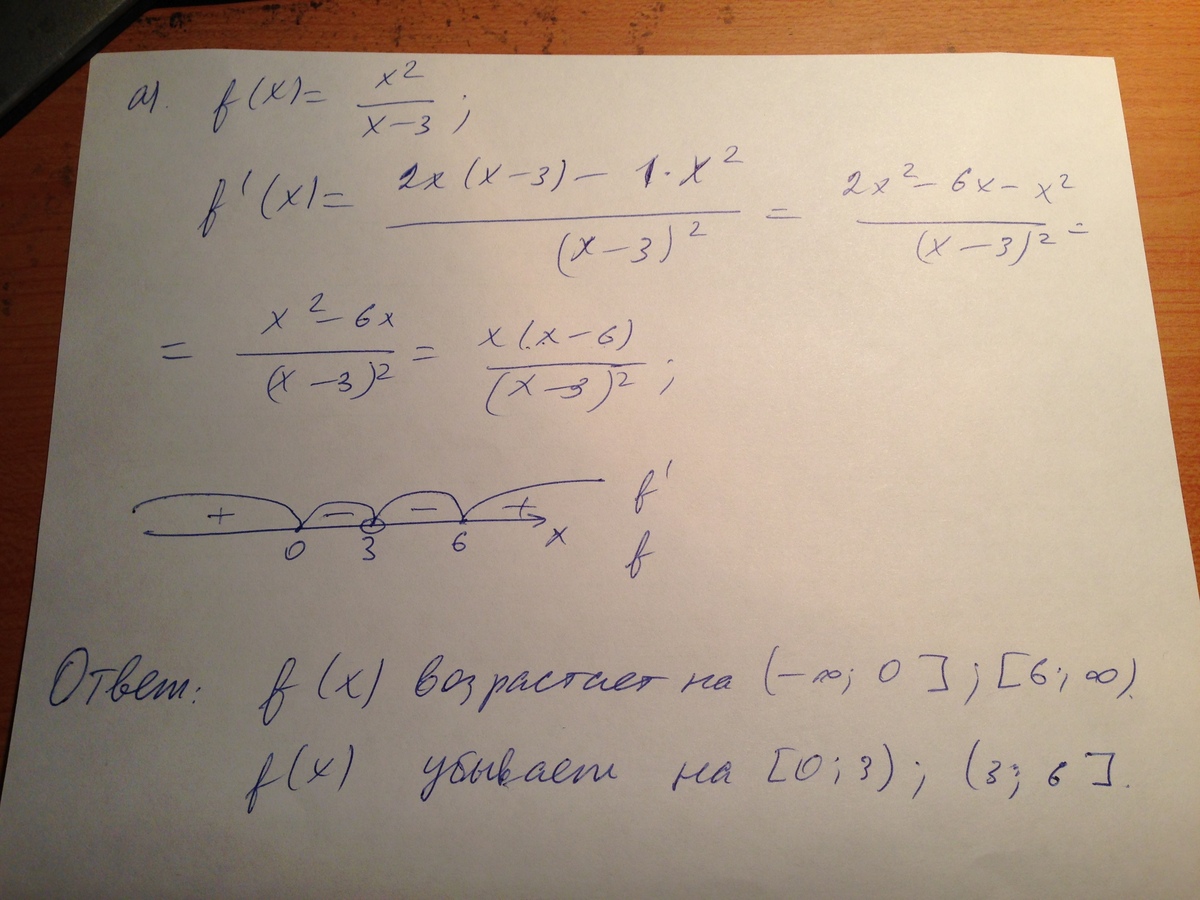 а). f(x) = x²/(x-3);
f'(x) = (2x(x-3) - 1·x²)/(x-3)² = (2x² - 6x - x²)/(x-3)² =
= (x² - 6x)/(x-3)² = x(x-6)/(x-3)²;
+ - - + f'
0 3 6 x f
Ответ: f(x) возрастает на (-∞; 0]; [6; ∞).
f(x) убывает на [0; 3); (3; 6].